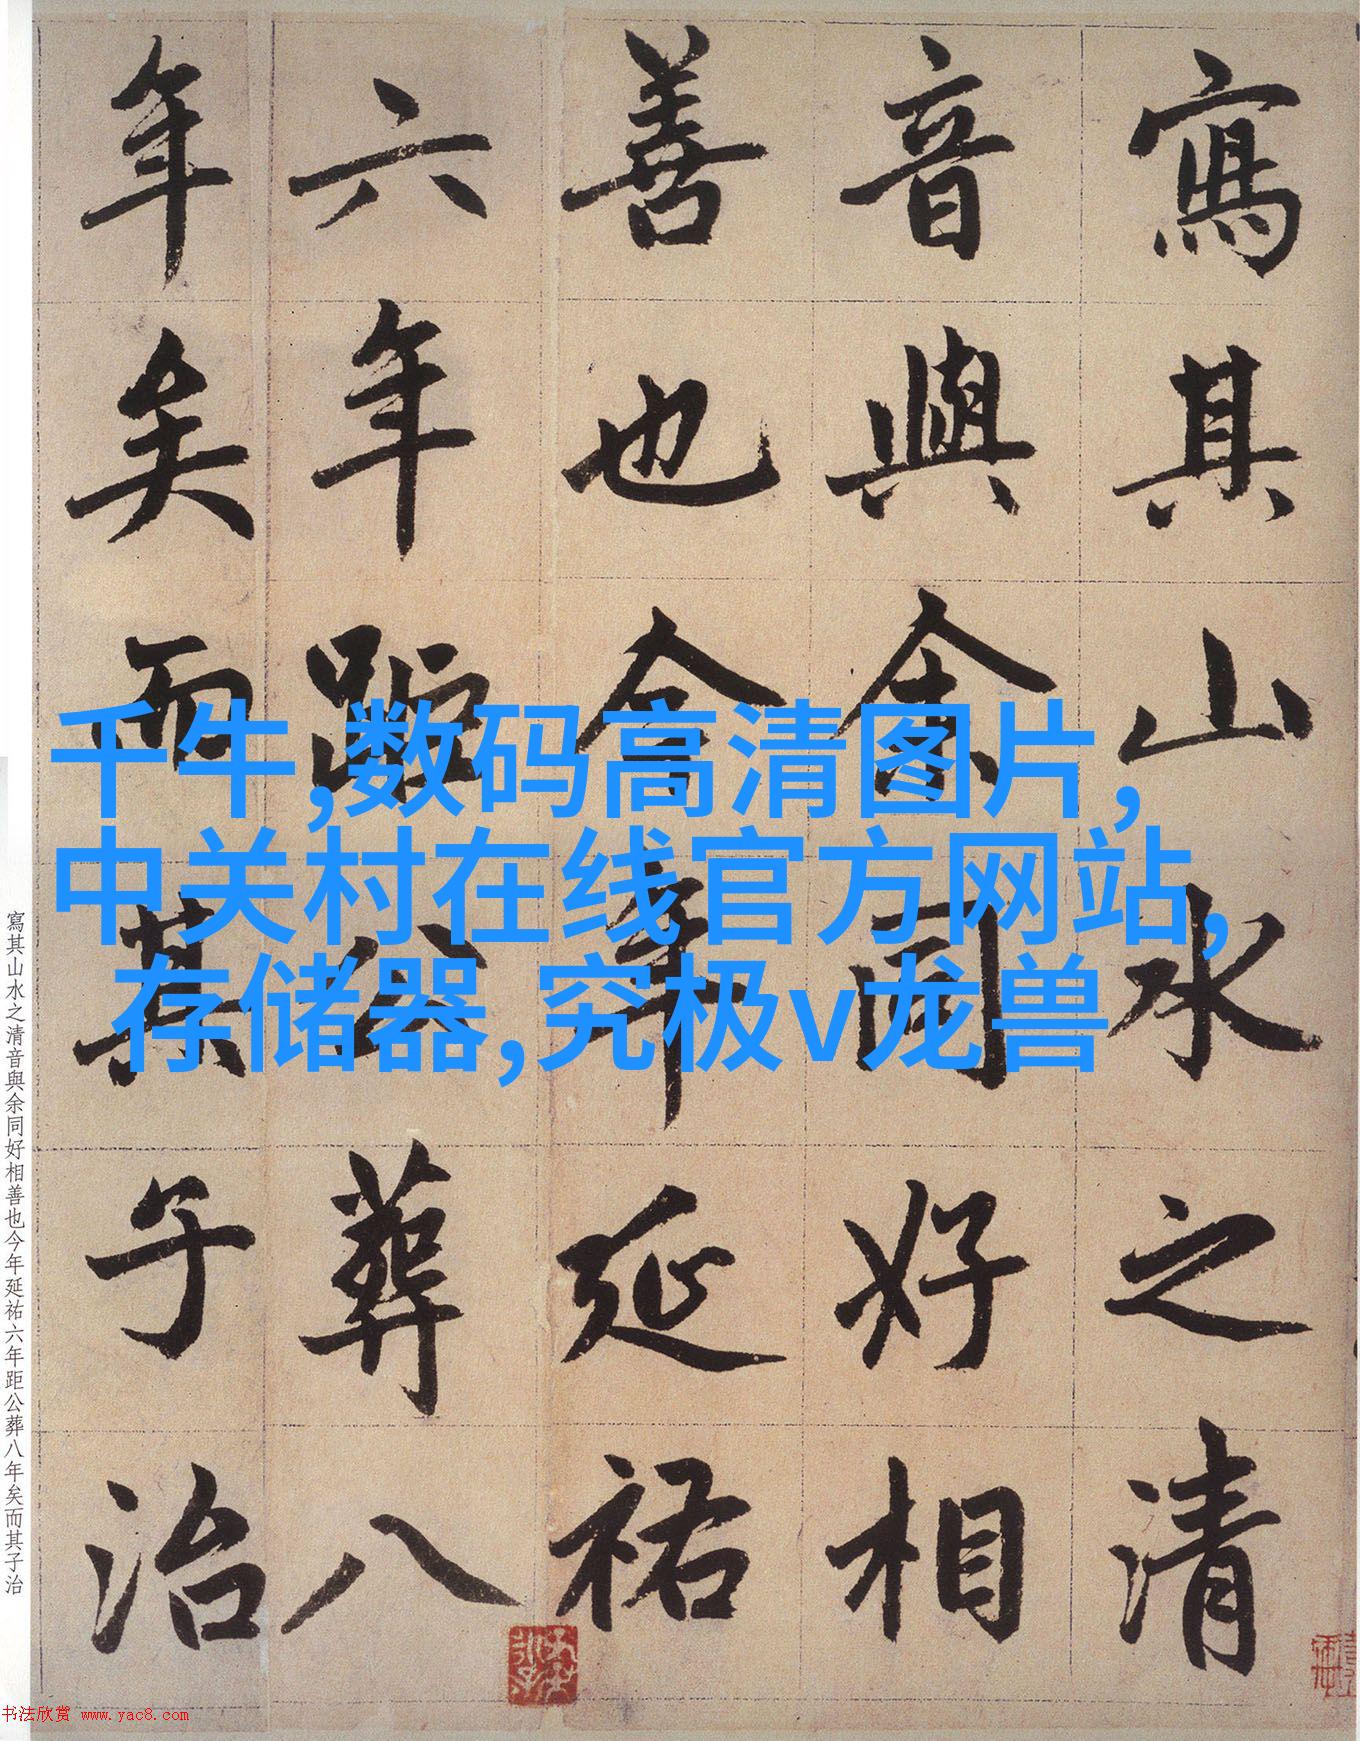 寫其山水之清
音與余同好相
善也今年延祐
六年距公葬八
年矣而其子治
千牛,数码高清图片,
中关村在线官方网站,
存储器,究极v龙兽
寫其山水之清音與余同好相善也今年延祐六年距公葬八年矣而其子治
书法欣赏 www.yac8.com